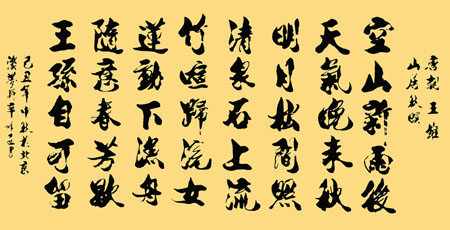 唐朝王維
山居秋暝
空山新雨後
天氣晚來秋
明月松間照
清泉石上流
竹喧歸浣女
蓮動下漁舟
隨意春芳歇
王孫自可留
己丑年中秋於北京